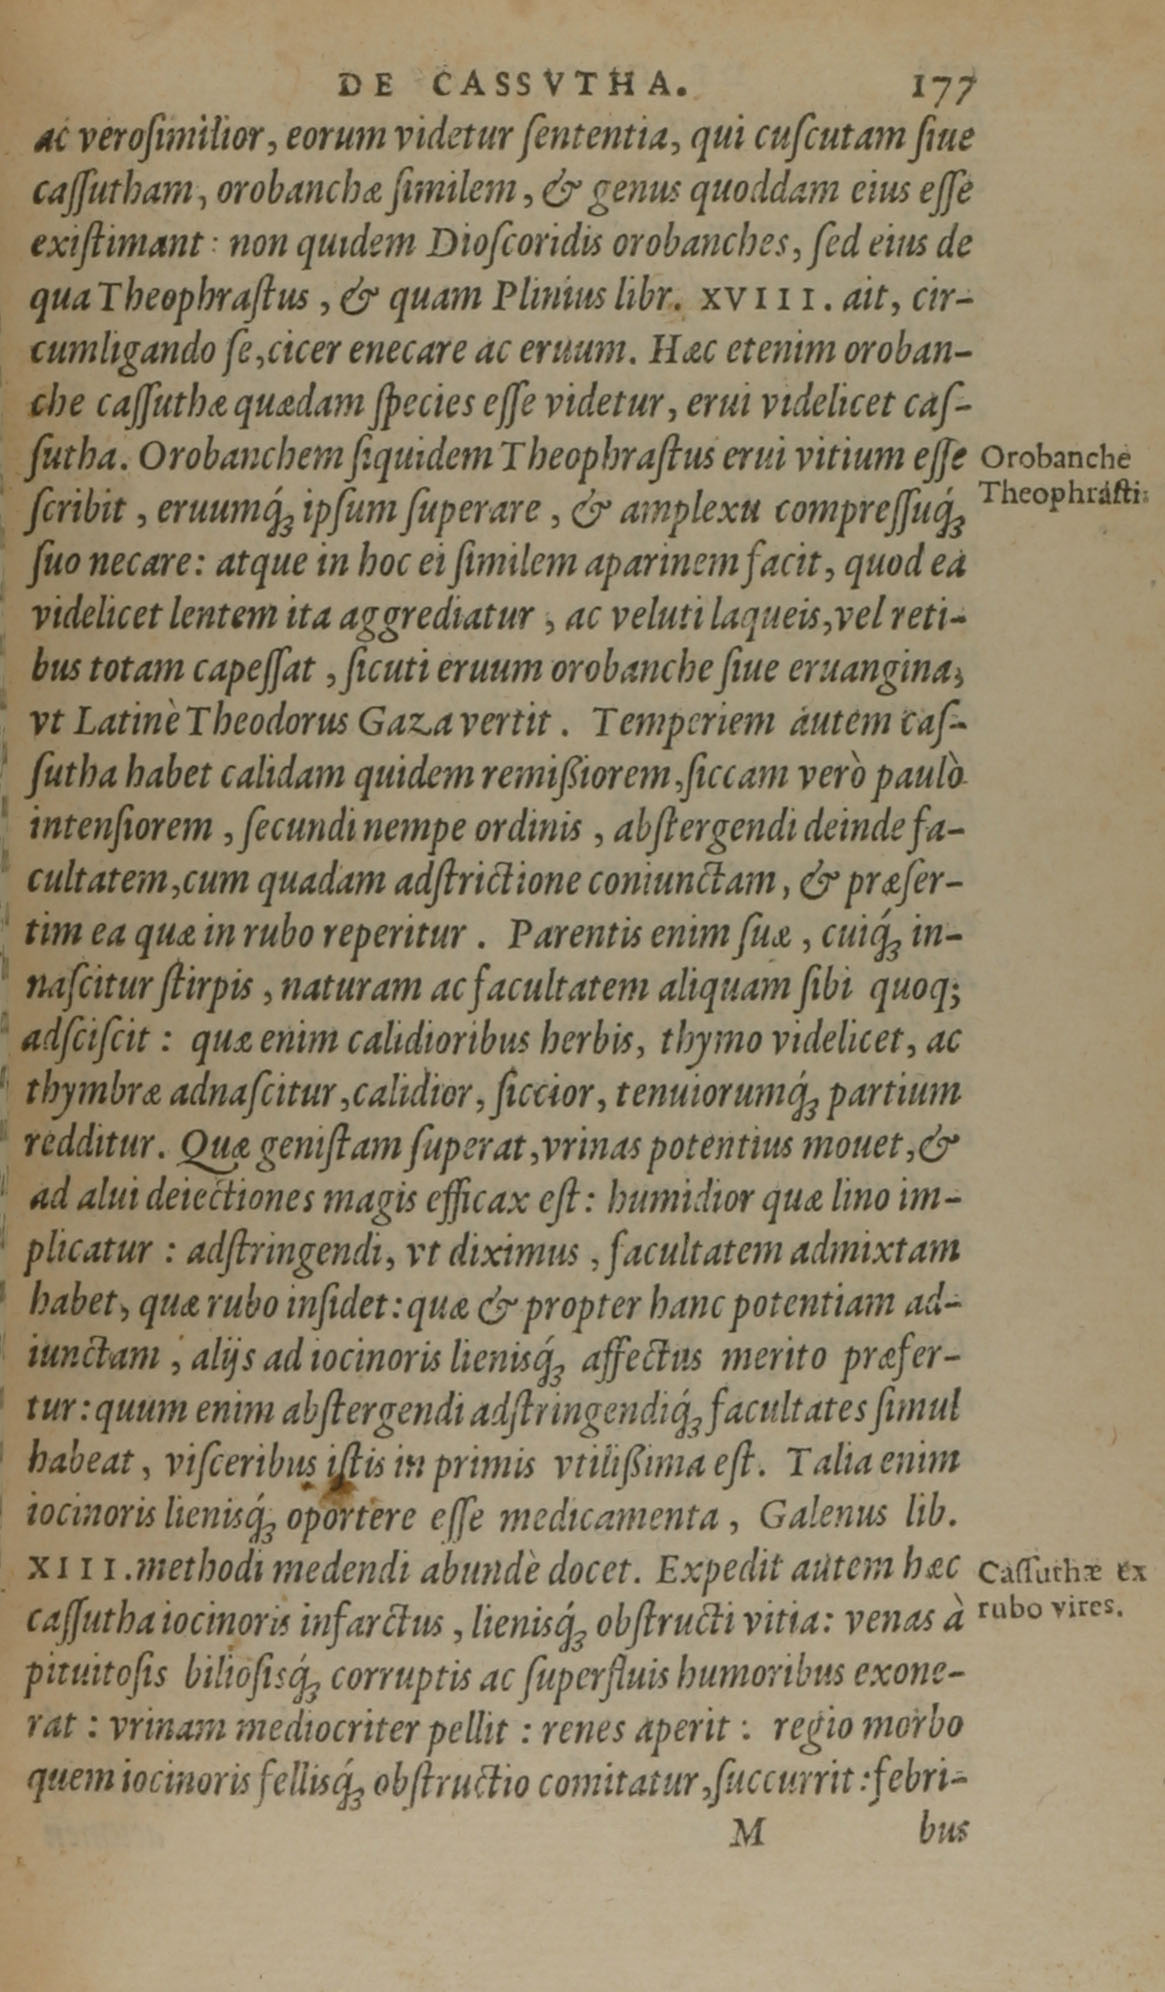 DE CASSVTHA. 177
ac verosimilior, eorum videtur sententia, qui cuscutam siue
cassutham, orobanchæ similem, & genus quoddam eius esse
existimant: non quidem Dioscoridis orobanches, sed eius de
qua Theophrastus, & quam Plinius libr. XVIII. ait, cir-
cumligando se, cicer enecare ac eruum. Hæc etenim oroban-
che cassuthæ quædam species esse videtur, erui videlicet cas-
sutha. Orobanchem siquidem Theophrastus erui vitium esse
Orobanche
Theophrasti.
scribit, eruumq́; ipsum superare, & amplexu compressuq́;
suo necare: atque in hoc ei similem aparinem facit, quod ea
videlicet lentem ita aggrediatur, ac veluti laqueis, vel reti-
bus totam capessat, sicuti eruum orobanche siue eruangina,
vt Latinè Theodorus Gaza vertit. Temperiem autem cas-
sutha habet calidam quidem remißiorem, siccam verò paulò
intensiorem, secundi nempe ordinis, abstergendi deinde fa-
cultatem, cum quadam adstrictione coniunctam, & præser-
tim ea quæ in rubo reperitur. Parentis enim suæ, cuiq́; in-
nascitur stirpis, naturam ac facultatem aliquam sibi quoq;
adsciscit: quæ enim calidioribus herbis, thymo videlicet, ac
thymbræ adnascitur, calidior, siccior, tenuiorumq́; partium
redditur. Quæ genistam superat, vrinas potentius mouet, &
ad alui deiectiones magis efficax est: humidior quæ lino im-
plicatur: adstringendi, vt diximus, facultatem admixtam
habet, quæ rubo insidet: quæ & propter hanc potentiam ad-
iunctam, alijs ad iocinoris lienisq́; affectus merito præfer-
tur: quum enim abstergendi adstringendiq́; facultates simul
habeat, visceribus istis in primis vtilißima est. Talia enim
iocinoris lienisq́; oportere esse medicamenta, Galenus lib.
XIII. methodi medendi abundè docet. Expedit autem hæc
Cassuthæ ex
rubo vires.
cassutha iocinoris infarctus, lienisq́; obstructi vitia: venas à
pituitosis biliosisq́; corruptis ac superfluis humoribus exone-
rat: vrinam mediocriter pellit: renes aperit: regio morbo
quem iocinoris fellisq́; obstructio comitatur, succurrit: febri-
M bus